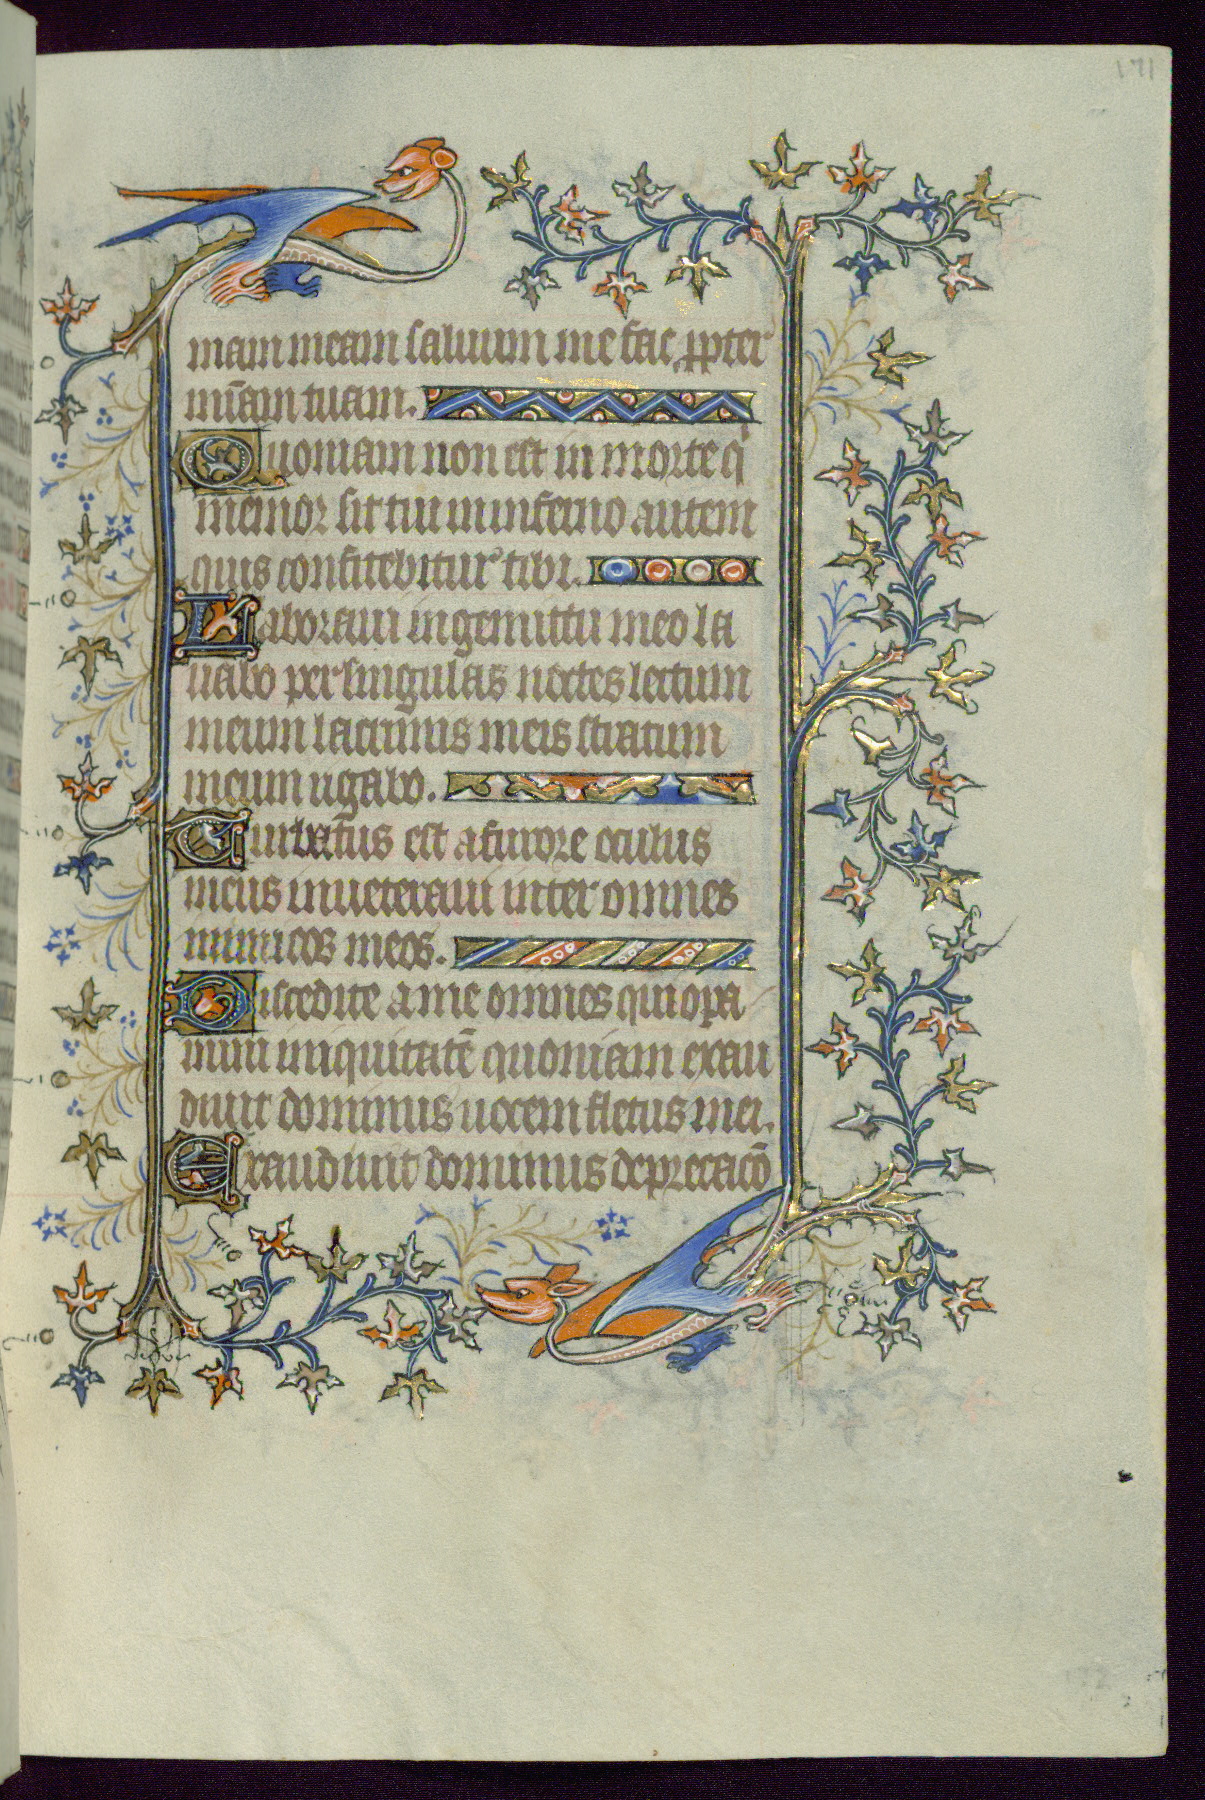 171
mam meam saluum me fac ꝓpter
mīam tuam.
Quoniam non est in morte qͥ
memor sit tui in inferno autem
quis confitebitur tibi.
Laboraui in gemittu meo la
uabo per singulas noctes lectum
meum lacrimis meis stratum
meum rigabo.
Turbatus est a furore oculus
meus inueteraui inter omnes
inimicos meos.
Discedite a me omnes qui opa
mini iniquitatē quoniam exau
diuit dominus uocem fletus mei.
Exaudiuit dominus deprecacō